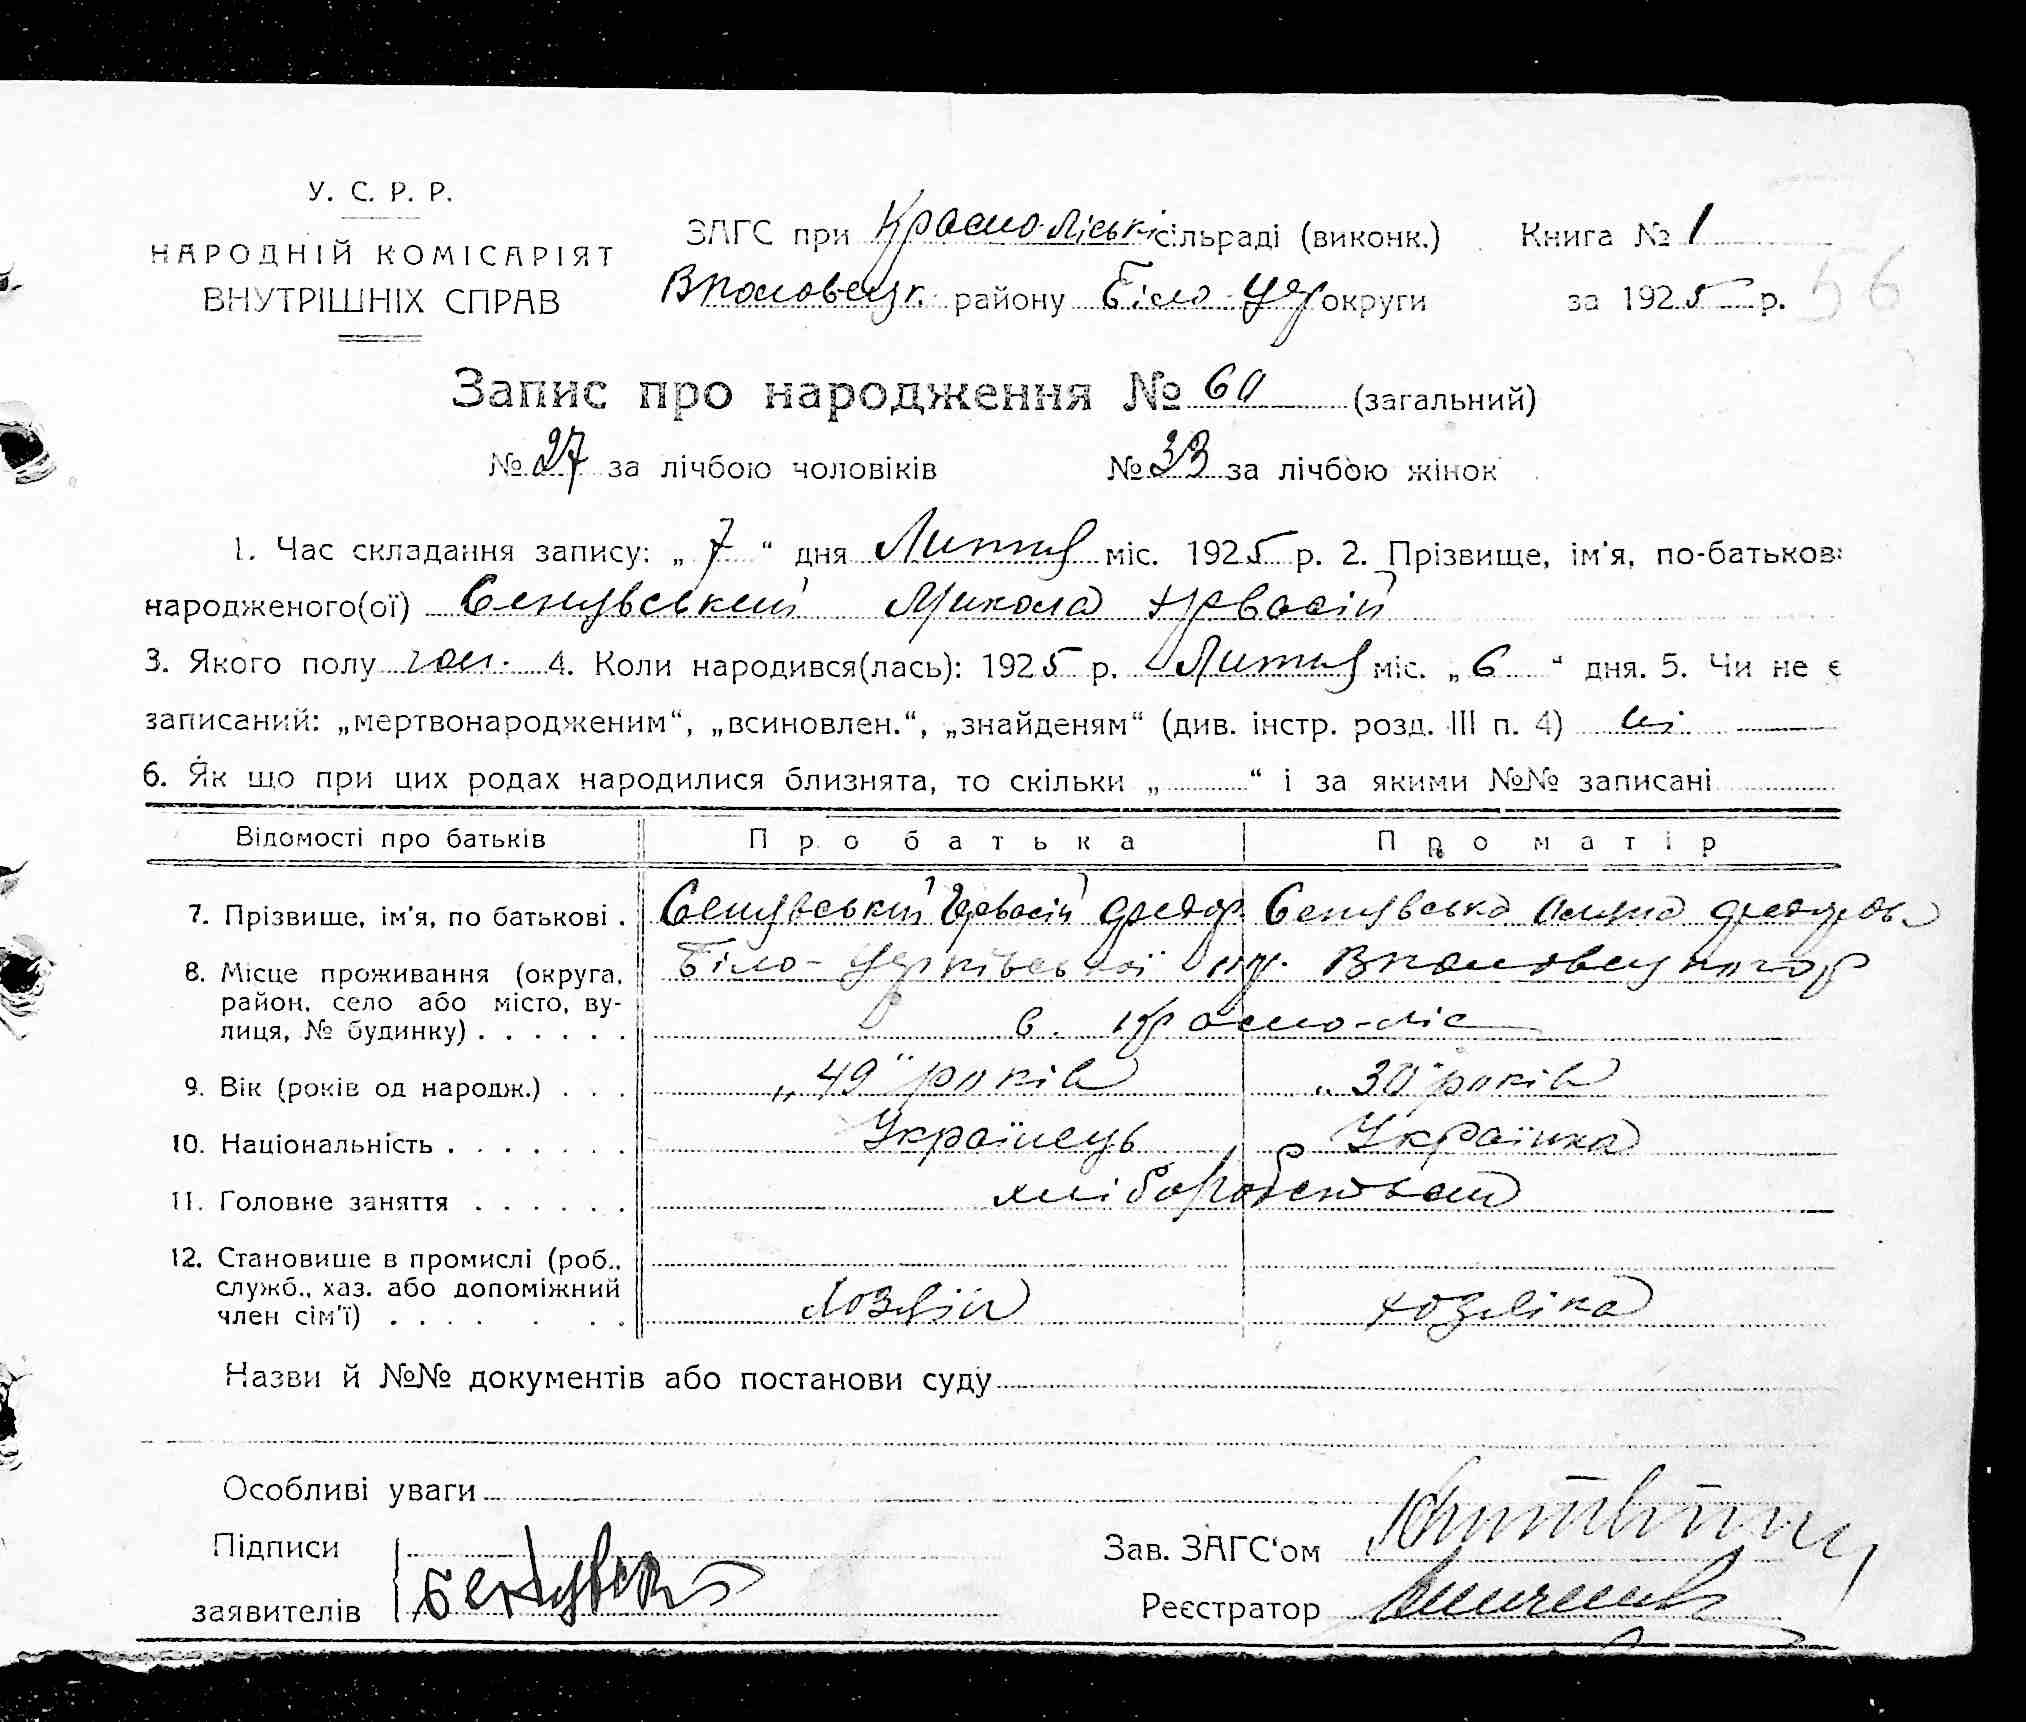 У. С. Р. Р.
НАРОДНІЙ КОМІСАРІЯТ
ВНУТРІШНІХ СПРАВ
ЗАГС при Красно-Ліській сільраді (виконк.) Книга № 1
району Біло-Цер округи за 1925 р. 56
Запис про народження № 60 (загальний)
№ 27 за лічбою чоловіків № 33 за лічбою жінок
1. Час складання запису: „ 7 “ дня Лютня міс. 1925 р. 2. Прізвище, ім'я, по-батькові
народженого(ої) Микола
3. Якого полу чол. 4. Коли народився(лась): 1925 р. Лютня міс. „ 6 “ дня. 5. Чи не є
записаний: „мертвонародженим“, „всиновлен.“, „знайденям“ (див. інстр. розд. III п. 4) ні
6. Як що при цих родах народилися близнята, то скільки „ “ і за якими №№ записані
Відомості про батьків Про батька Про матір
7. Прізвище, ім'я, по батькові . Гервасій Федор
8. Місце проживання (округа, район, село або місто, вулиця, № будинку) . . . . . . Біло-Церківської окр.
с. Красно-ліс
9. Вік (років од народж.) . . . „49" років „30" років
10. Національність . . . . . . . Українець Українка
11. Головне заняття . . . . . . хліборобство
12. Становище в промислі (роб., служб., хаз. або допоміжний член сім'ї) . . . . . . . Хозяїн хозяіка
Назви й №№ документів або постанови суду
Особливі уваги
Підписи
заявителів
Зав. ЗАГС'ом
Реєстратор